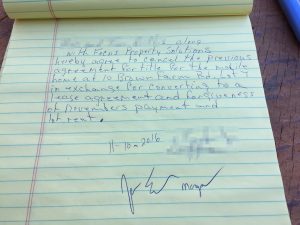 along
with Focus Property Solutions
hereby agree to cancel the previous
agreement for title for the mobile
home at 10 Brown Farm Rd. Lot 7
in exchange for converting to a
lease agreement and forgiveness
of November's payment and
lot rent.
11-10-2016